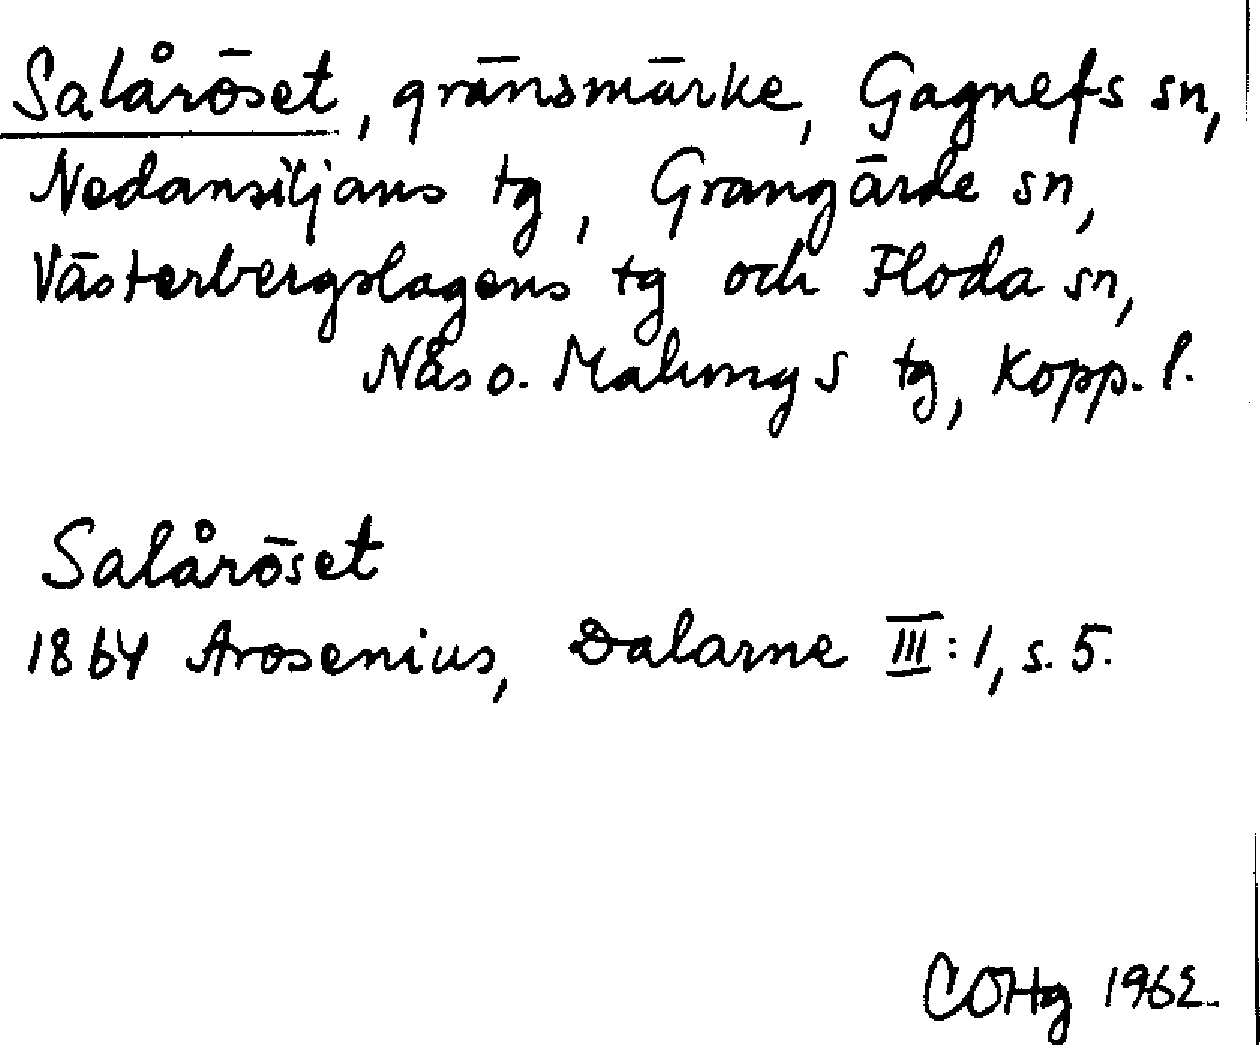 Salåröset, gränsmärke, Gagnefs sn,
Nedansiljans tg, Grangärde sn,
Västerbergslagens tg och Floda sn,
Nås o. Malungs tg, Kopp. l.
Salåröset
1864 Arosenius, Dalarne III:1, s. 5.
COHg 1962.